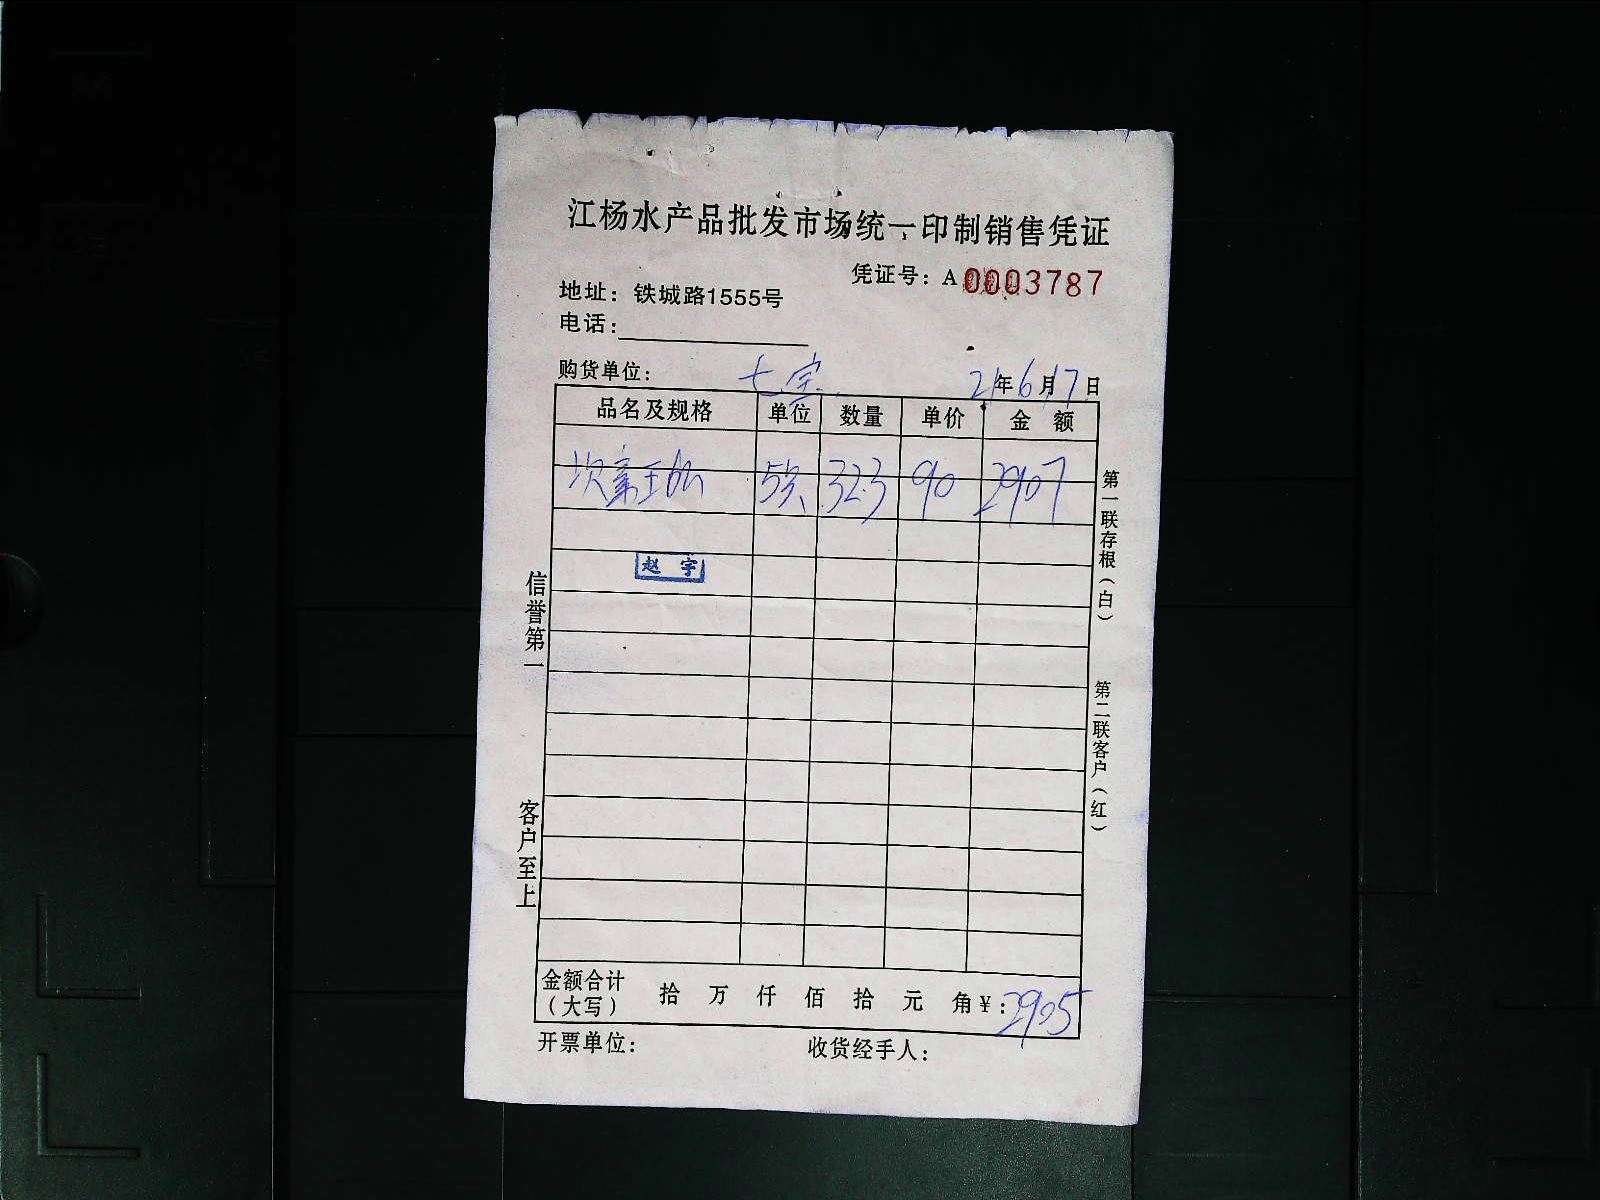 江杨水产品批发市场统一印制销售凭证
凭证号：A 0003787
地址：铁城路1555号
电话：
购货单位： 21年6月17日
品名及规格 单位 数量 单价 金 额
5只 32.3 90 2907
赵 宇
金额合计（大写） 拾 万 仟 佰 拾 元 角 ¥：2905
开票单位： 收货经手人：
信誉第一 客户至上
第一联存根（白） 第二联客户（红）